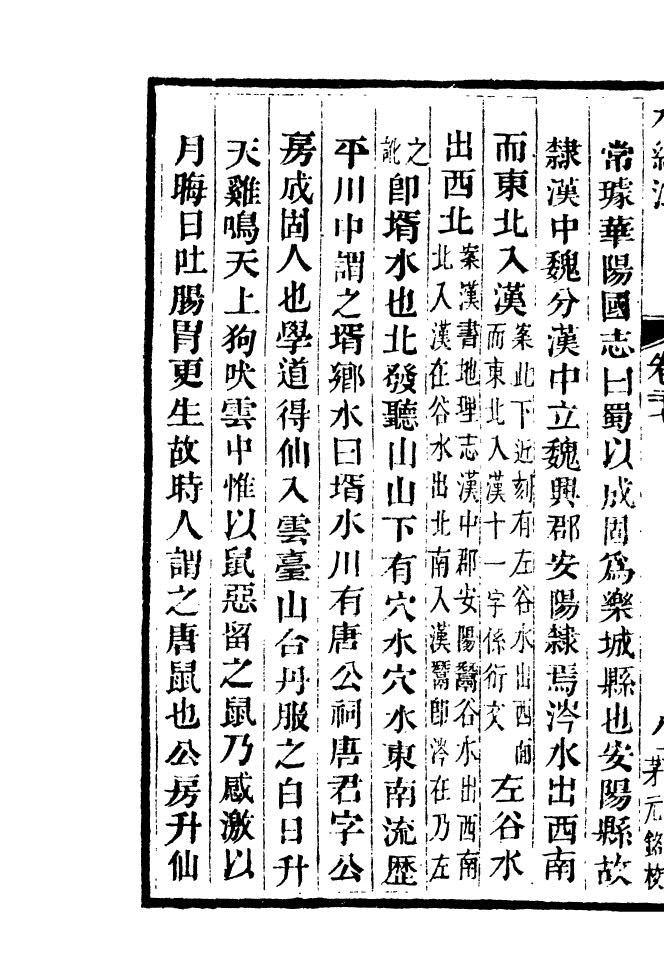 常璩華陽國志曰蜀以成固爲樂城縣也安陽縣故
隸漢中魏分漢中立魏興郡安陽隸焉涔水出西南
而東北入漢案此下近刻有左谷水出西南而東北入漢十一字係衍文左谷水
出西北案漢書地理志漢中郡安陽鬵谷水出西南北入漢在谷水出北南入漢鬵卽涔在乃左
之訛卽壻水也北發聽山山下有穴水穴水東南流歷
平川中謂之壻鄉水曰壻水川有唐公祠唐君字公
房成固人也學道得仙入雲臺山合丹服之白日升
天雞鳴天上狗吠雲中惟以鼠惡留之鼠乃感激以
月晦日吐腸胃更生故時人謂之唐鼠也公房升仙
茅元銘校